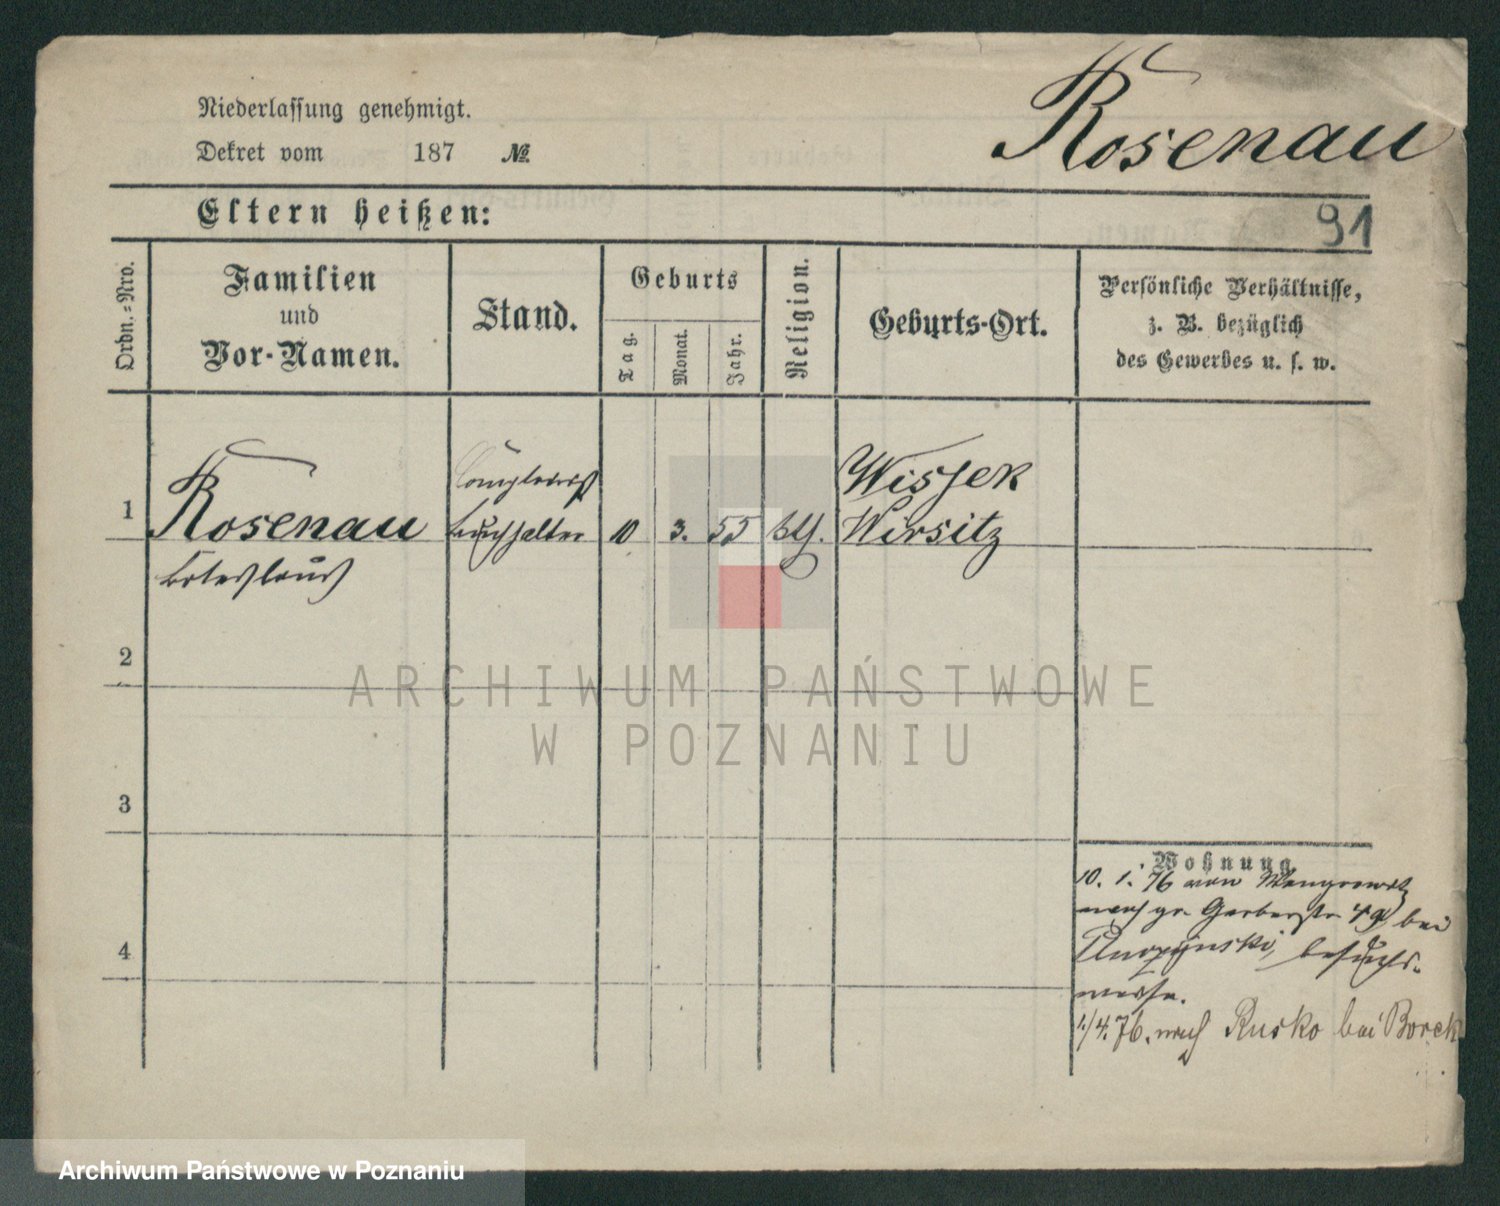 Niederlassung genehmigt.
Dekret vom 187 №
Rosenau
Eltern heißen:
91
Ordn.=Nro.
Familien
und
Vor-Namen.
Stand.
Geburts
Tag.
Monat.
Jahr.
Religion.
Geburts-Ort.
Persönliche Verhältnisse,
z. B. bezüglich
des Gewerbes u. s. w.
1
Rosenau
Buchhalter
10
3.
55
Wissek
Wirsitz
2
3
4
Wohnung
10. 1. 76 von Wongrowitz
nach gr. Gerberstr 49 bei
besuchs-
weise.
1/4. 76. nach Rusko bei Borek
ARCHIWUM PAŃSTWOWE
W POZNANIU
Archiwum Państwowe w Poznaniu